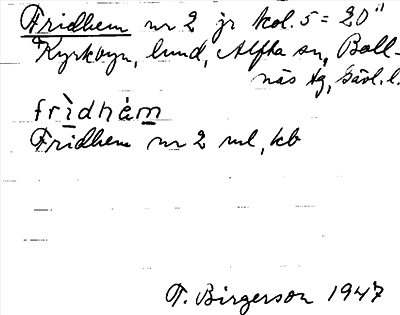 Fridhem nr 2 jr kol. 5 = 20"
Kyrkbyn, lund, Alfta sn, Boll-
näs tg, Gävl. l.
frìdhém
Fridhem nr 2 ml, kb
T. Birgerson 1947